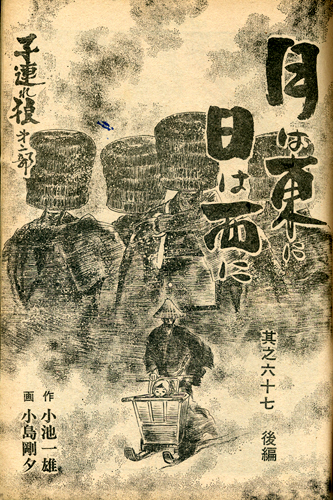 月は東に
日は西に
其之六十七 後編
子連れ狼 第一部
作 小池一雄
画 小島剛夕